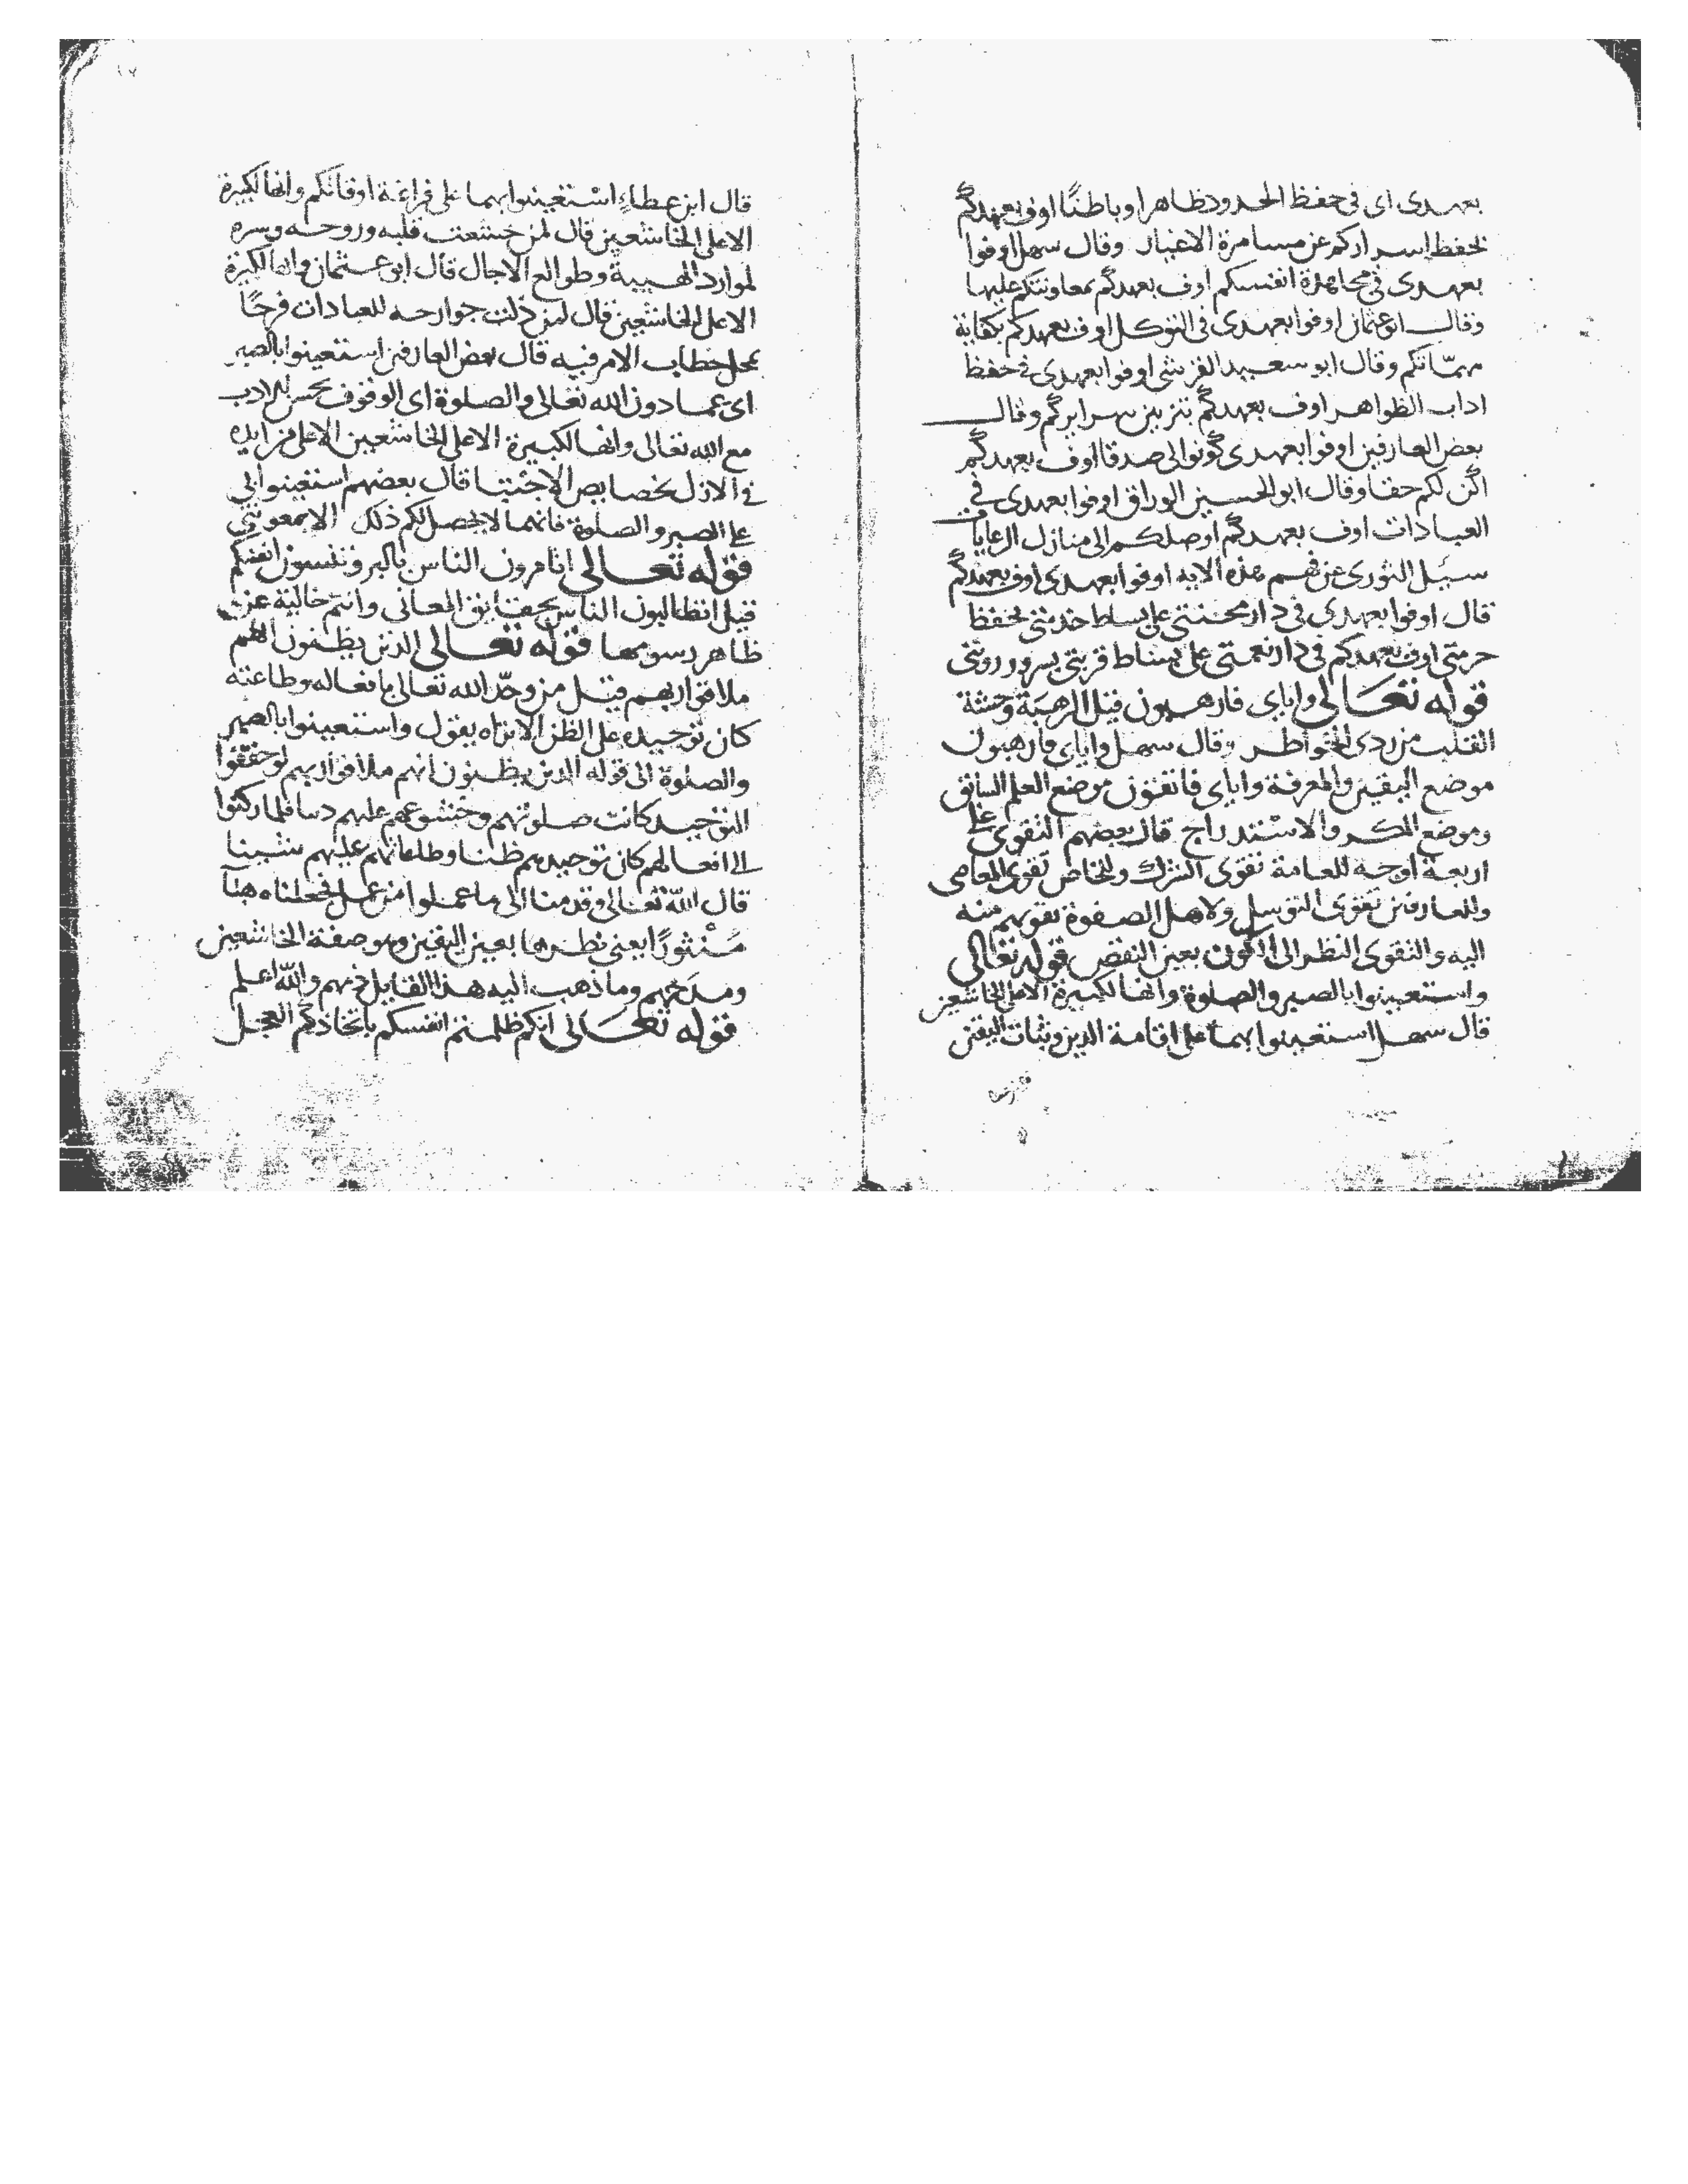 بعهدى اى فى حفظ الحدود ظاهرا وباطنًا اوف بعهدكم
بحفظ اسراركم عن مسامرة الاغيار وقال سهل اوفوا
بعهدى فى مجاهدة انفسكم اوف بعهدكم بمعاونتكم عليها
وقال ابو عثمان اوفوا بعهدى فى التوكل اوف بعهدكم بكفاية
مهمّاتكم وقال ابو سعيد القرشى اوفوا بعهدى فى حفظ
اداب الظواهر اوف بعهدكم بتزيين سرايركم وقال
بعض العارفين اوفوا بعهدى كونوا لى صدقا اوف بعهدكم
اكن لكم حقا وقال ابو الحسين الوراق اوفوا بعهدى فى
العبادات اوف بعهدكم اوصلكم الى منازل الرعايات
سيل الثورى عن فهم هذه الاية اوفوا بعهدى اوف بعهدكم
قال اوفوا بعهدى فى دار محنتى على بساط خدمتى بحفظ
حرمتى اوف بعهدكم فى دار نعمتى على بساط قربتى بسرور رويتى
قوله تعالى واياى فارهبون قيل الرهبة وحشة
القلب من ردى الخواطر وقال سهل واياى فارهبون
موضع اليقين والمعرفة واياى فاتقون موضع العلم السابق
وموضع المكر والاستدراج قال بعضهم التقوى على
اربعة اوجه للعامة تقوى الشرك وللخاص تقوى المعاصى
وللعارفين تقوى التوسل ولاهل الصفوة تقويهم منه
اليه والتقوى النظر الى الكون بعين النقص قوله تعالى
واستعينوا بالصبر والصلوة وانها لكبيرة الا على الخاشعين
قال سهل استعينوا بهما على اقامة الدين وثبات اليقين
قال ابن عطاء استعينوا بهما على اوقاتكم وانها لكبيرة
الا على الخاشعين قال لمن خشعت قلبه وروحه وسره
لموارد الهيبة وطوالع الاجلال قال ابو عثمان وانها لكبيرة
الا على الخاشعين قال لمن ذلت جوارحه للعبادات فرحًا
بمحل خطاب الامر فيه قال بعض العارفين استعينوا بالصبر
اى عما دون الله تعالى والصلوة اى الوقوف بحسن الادب
مع الله تعالى وانها لكبيرة الا على الخاشعين الا على من ايده
فى الازل بخصايص الاجتبا قال بعضهم استعينوا بى
على الصبر والصلوة فانهما لا يحصل لكم ذلك الا بمعونتى
قوله تعالى اتامرون الناس بالبر وتنسون انفسكم
قيل اتطالبون الناس بحقايق المعانى وانتم خالية عن
ظاهر رسومها قوله تعالى الذين يظنون انهم
ملاقوا ربهم قيل من وحّد الله تعالى بافعاله وطاعته
كان توحيده على الظن الا تراه يقول واستعينوا بالصبر
والصلوة الى قوله الذين يظنون انهم ملاقوا ربهم لو حققوا
التوحيد كانت صلوتهم وخشوعهم عليهم فلما ركنوا
الى افعالهم كان توحيدهم ظنا وطاعاتهم عليهم شينا
قال الله تعالى وقدمنا الى ما عملوا من عمل فجعلناه هبا
مَنْثورًا يعنى نظرها بعين اليقين وهو صفة الخاشعين
ومدحهم وما ذهب اليه هذا القايل والله اعلم
قوله تعالى انكم ظلمتم انفسكم باتخاذكم العجل